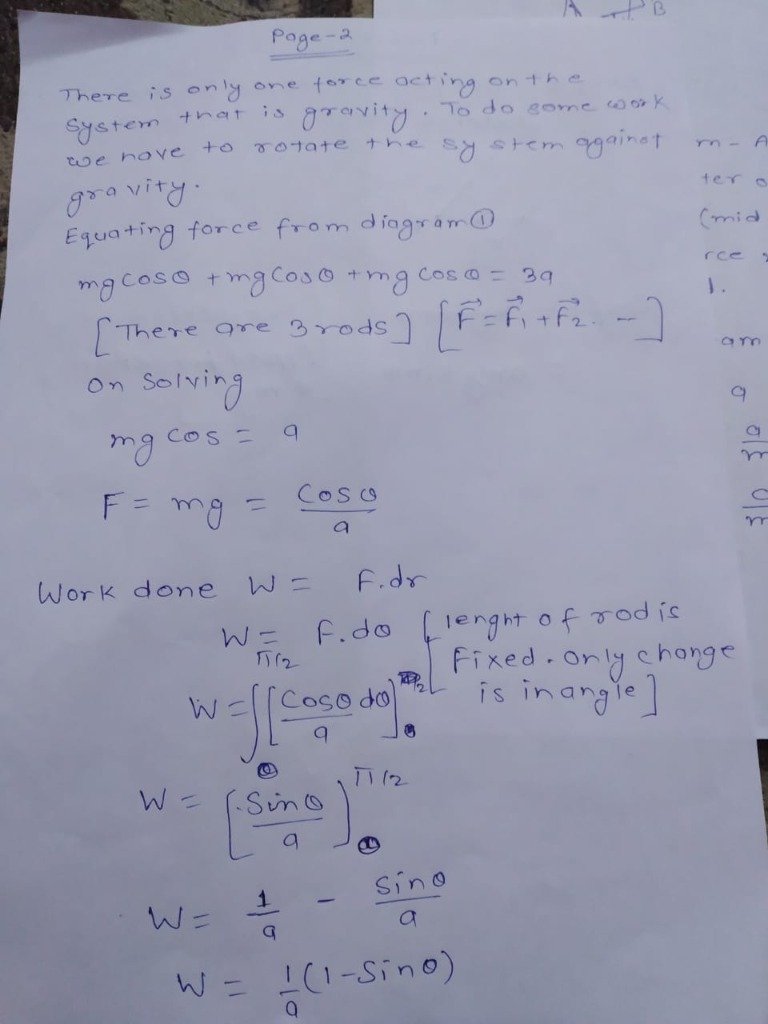 A B
Page-2
There is only one force acting on the
System that is gravity. To do some work
we have to rotate the system against
gravity.
Equating force from diagram ①
mg cosθ + mg cosθ + mg cosθ = 3a
[There are 3 rods] [F⃗ = F⃗₁ + F⃗₂. -]
On Solving
mg cos = a
F = mg = cosθ/a
Work done W = F.dr
W = F.dθ [lenght of rod is
Fixed. only change
is in angle]
W = ∫[cosθ dθ/a] π/2
W = [Sinθ/a] π/2
W = 1/a - sinθ/a
W = 1/a (1-Sinθ)
m - A
ter
(mid
rce
1.
am
a
a/m